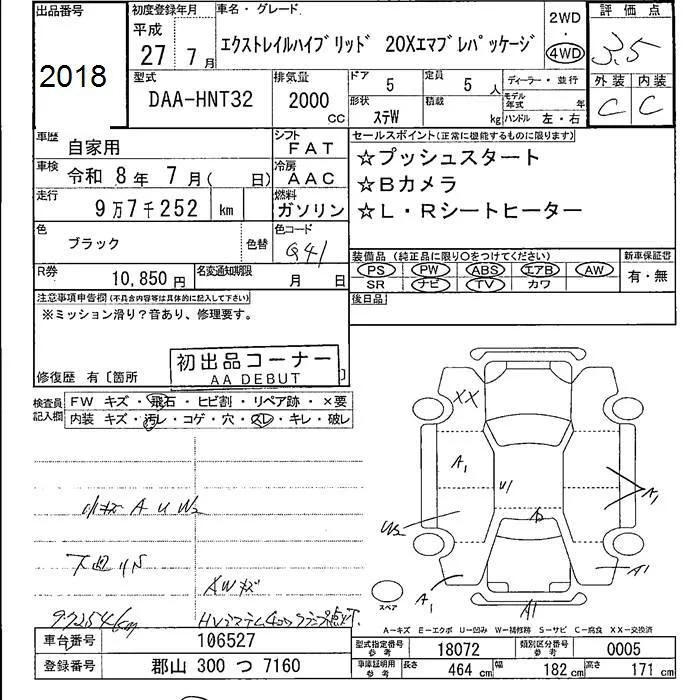 出品番号
2018
初度登録年月
平成
27年7月
車名・グレード
エクストレイルハイブリッド 20Xエマブレパッケージ
2WD
・
4WD
評価点
3.5
外装 内装
C C
型式
DAA-HNT32
排気量
2000
CC
ドア 5
定員 5人
形状 ステW
積載 kg
ディーラー・並行
モデル年式 年
ハンドル 左・右
車歴 自家用
シフト FAT
車検 令和 8年 7月( 日)
冷房 AAC
走行 9万7千252 km
燃料 ガソリン
セールスポイント(正常に機能するものに限ります)
☆プッシュスタート
☆Bカメラ
☆L・Rシートヒーター
色 ブラック
色替
色コード G41
R券 10,850円
名変通知期限 月 日
装備品(純正品に限り○をつけてください)
PS PW ABS エアB AW
SR ナビ TV カワ
新車保証書
有・無
後日品
注意事項申告欄(不具合内容等は具体的に記入して下さい)
※ミッション滑り?音あり、修理要す。
初出品コーナー
AA DEBUT
修復歴 有〔箇所 〕
検査員記入欄
FW キズ・飛石・ヒビ割・リペア跡・×要
内装 キズ・汚レ・コゲ・穴・スレ・キレ・破レ
小キズ A U W2
下廻りS
AWキズ
97254km
HVシステム4WDランプ点灯.
XX
A1
U1
W2
A1
A1
A1
A1
スペア
A-キズ E-エクボ U-凹み W-補修跡 S-サビ C-腐食 XX-交換済
車台番号 106527
登録番号 郡山 300 つ 7160
型式指定番号 参考 18072
類別区分番号 参考 0005
車庫証明用 参考 長さ 464 cm 幅 182 cm 高さ 171 cm